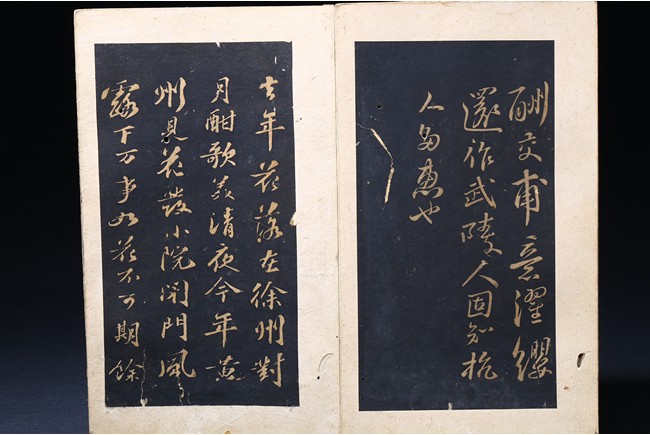 酬交甫意濯纓
還作武陵人固知
人 惠也
去年花落在徐州對
月酣歌美清夜今年黃
州見花發小院閉門風
露下万事如花不可期餘